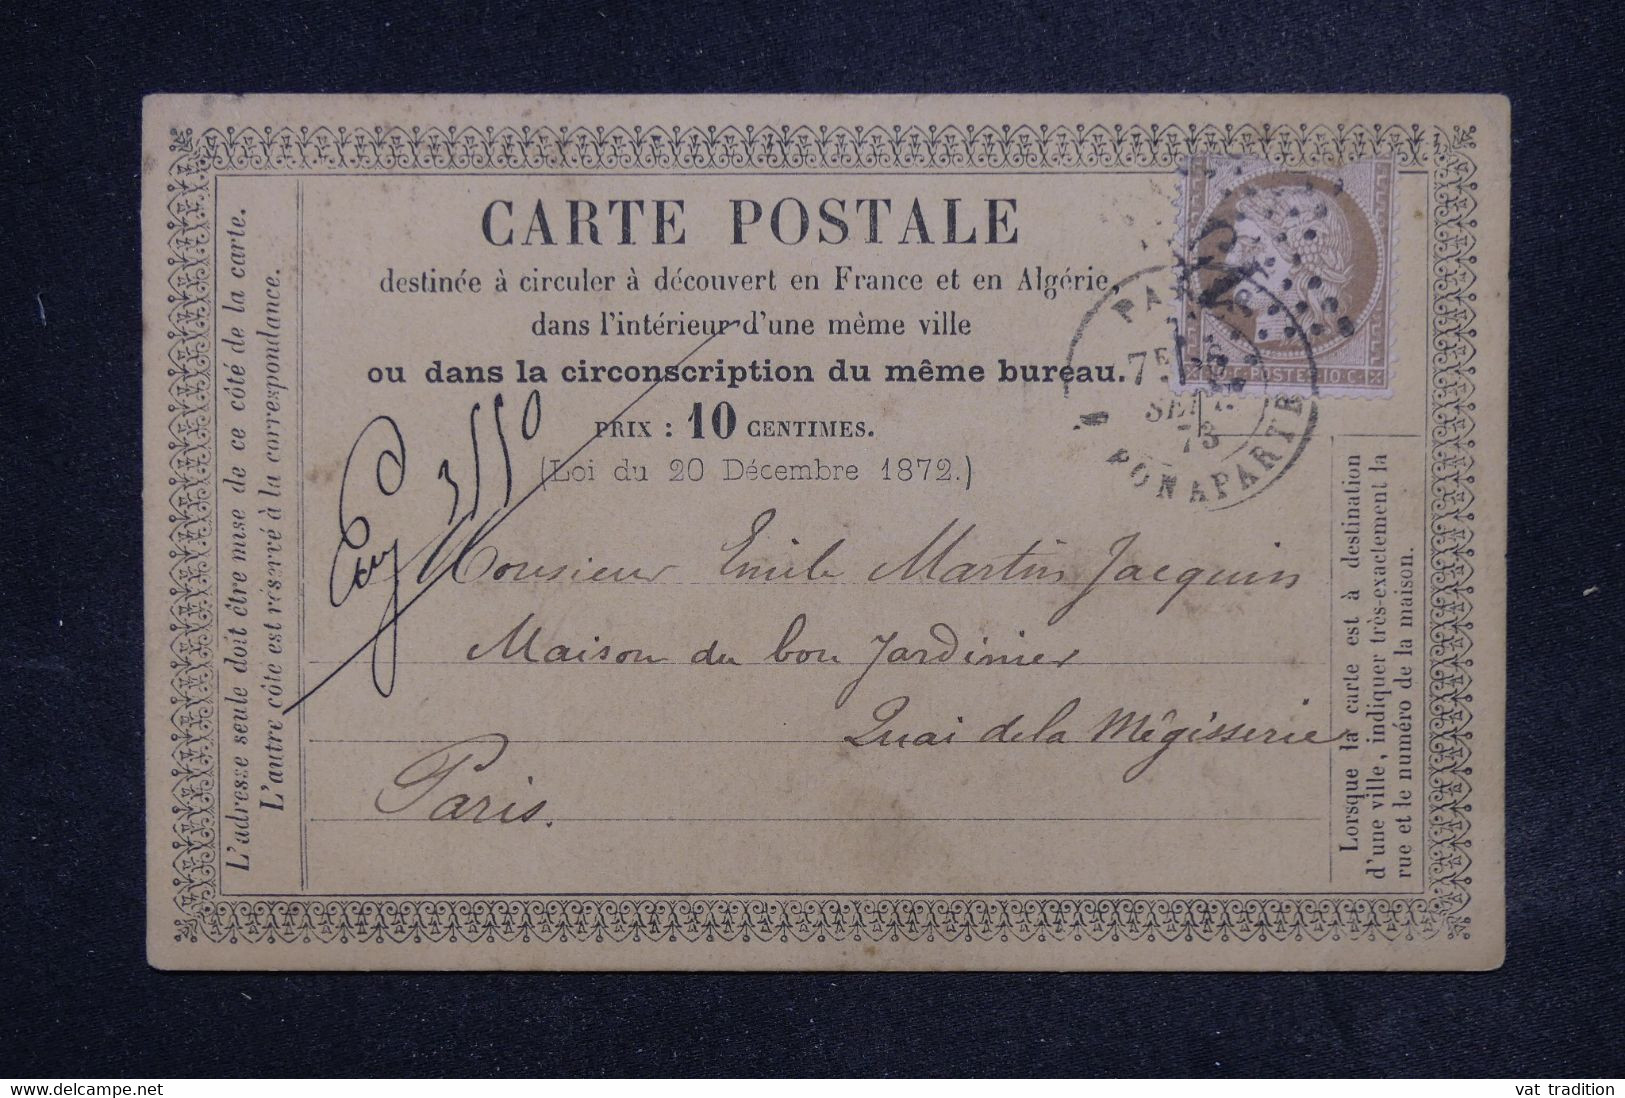 CARTE POSTALE
destinée à circuler à découvert en France et en Algérie,
dans l'intérieur d'une même ville
ou dans la circonscription du même bureau.
PRIX : 10 CENTIMES.
(Loi du 20 Décembre 1872.)
L'adresse seule doit être mise de ce côté de la carte.
L'autre côté est réservé à la correspondance.
PARIS
7E
SEPT.
73
BONAPARTE
POSTE 10 C.
Monsieur Emile Martin Jacquin
Maison du bon Jardinier
Quai de la Mégisserie
Paris.
Lorsque la carte est à destination
d'une ville, indiquer très-exactement la
rue et le numéro de la maison.
delcampe.net
vat tradition